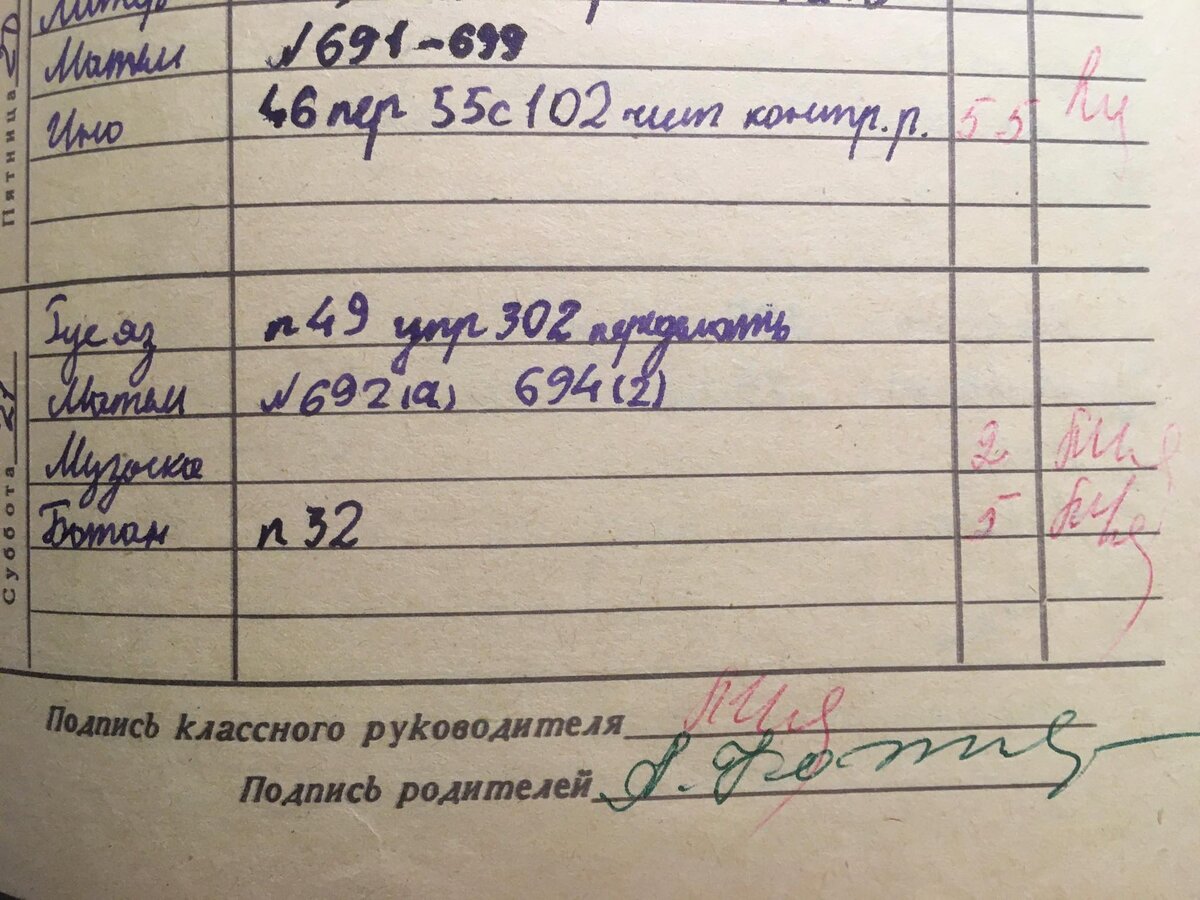 Пятница 20
Матем №691-699
Ино 46 пер 55с 102 чит контр.р. 5 5
Суббота 21
Рус яз п 49 упр 302 переделать
Матем №692(а) 694(2)
Музыка 2
Ботан п 32 5
Подпись классного руководителя
Подпись родителей